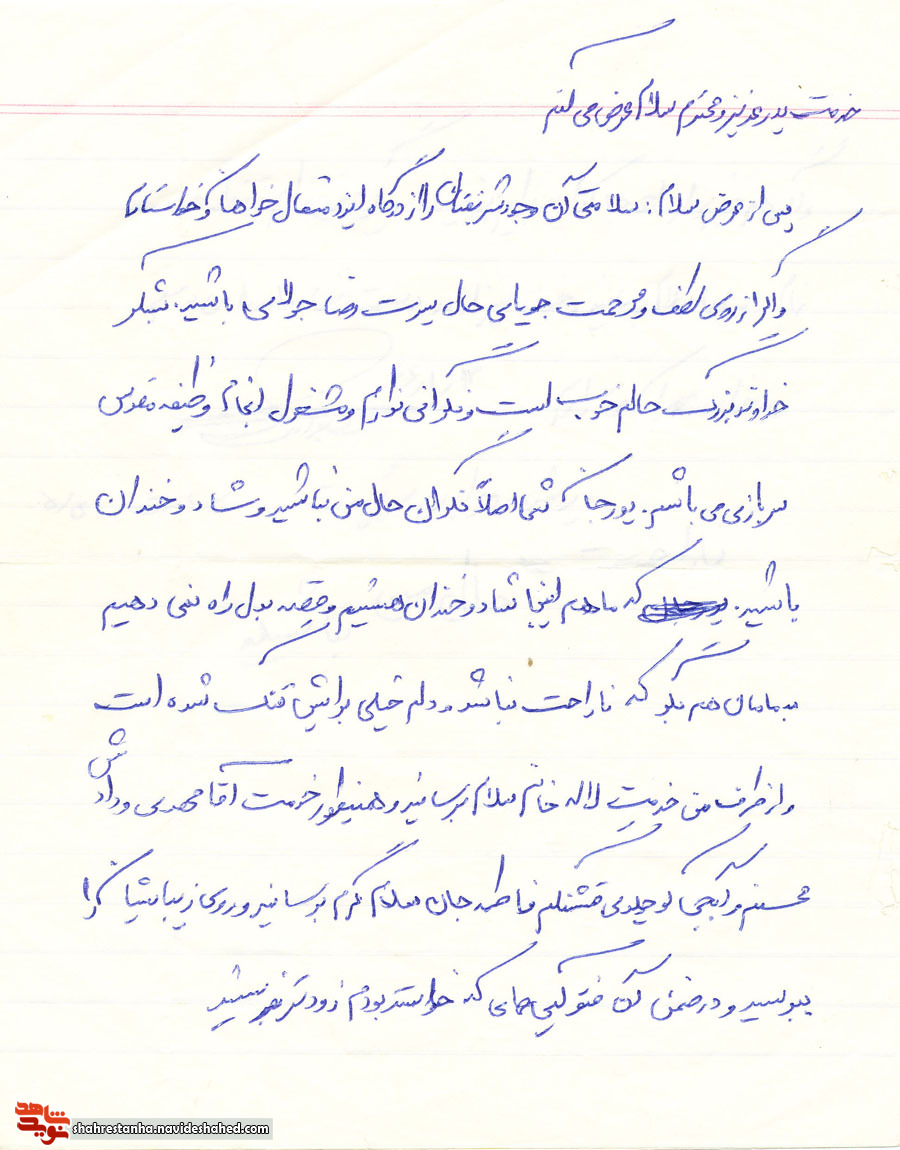 خدمت پدر عزیز و محترم سلام عرض می کنم
پس از عرض سلام: سلامتی آن وجود شریفتان را از درگاه ایزد متعال خواهان و خواستارم
و اگر از روی لطف و مرحمت جویای حال پسرت رضا جولایی باشید. شکر
خداوند بزرگ حالم خوب است و نگرانی ندارم و مشغول انجام وظیفه مقدس
سربازی می باشم. پدر جان شما اصلاً نگران حال من نباشید و شاد و خندان
باشید. که ما هم اینجا شاد و خندان هستیم و غصه بدل راه نمی دهیم
به مامان هم بگو که ناراحت نباشد و دلم خیلی برایش تنگ شده است
و از طرف من خدمت لاله خانم سلام برسانید و همینطور خدمت آقا مهدی و داداش
محسنم و آبجی کوچلوی قشنگم فاطمه جان سلام گرم برسانید و روی زیباشان را
ببوسید و در ضمن آن فتوکپی های که خواسته بودم زودتر بفرستید
نوید شاهد
shahrestanha.navideshahed.com